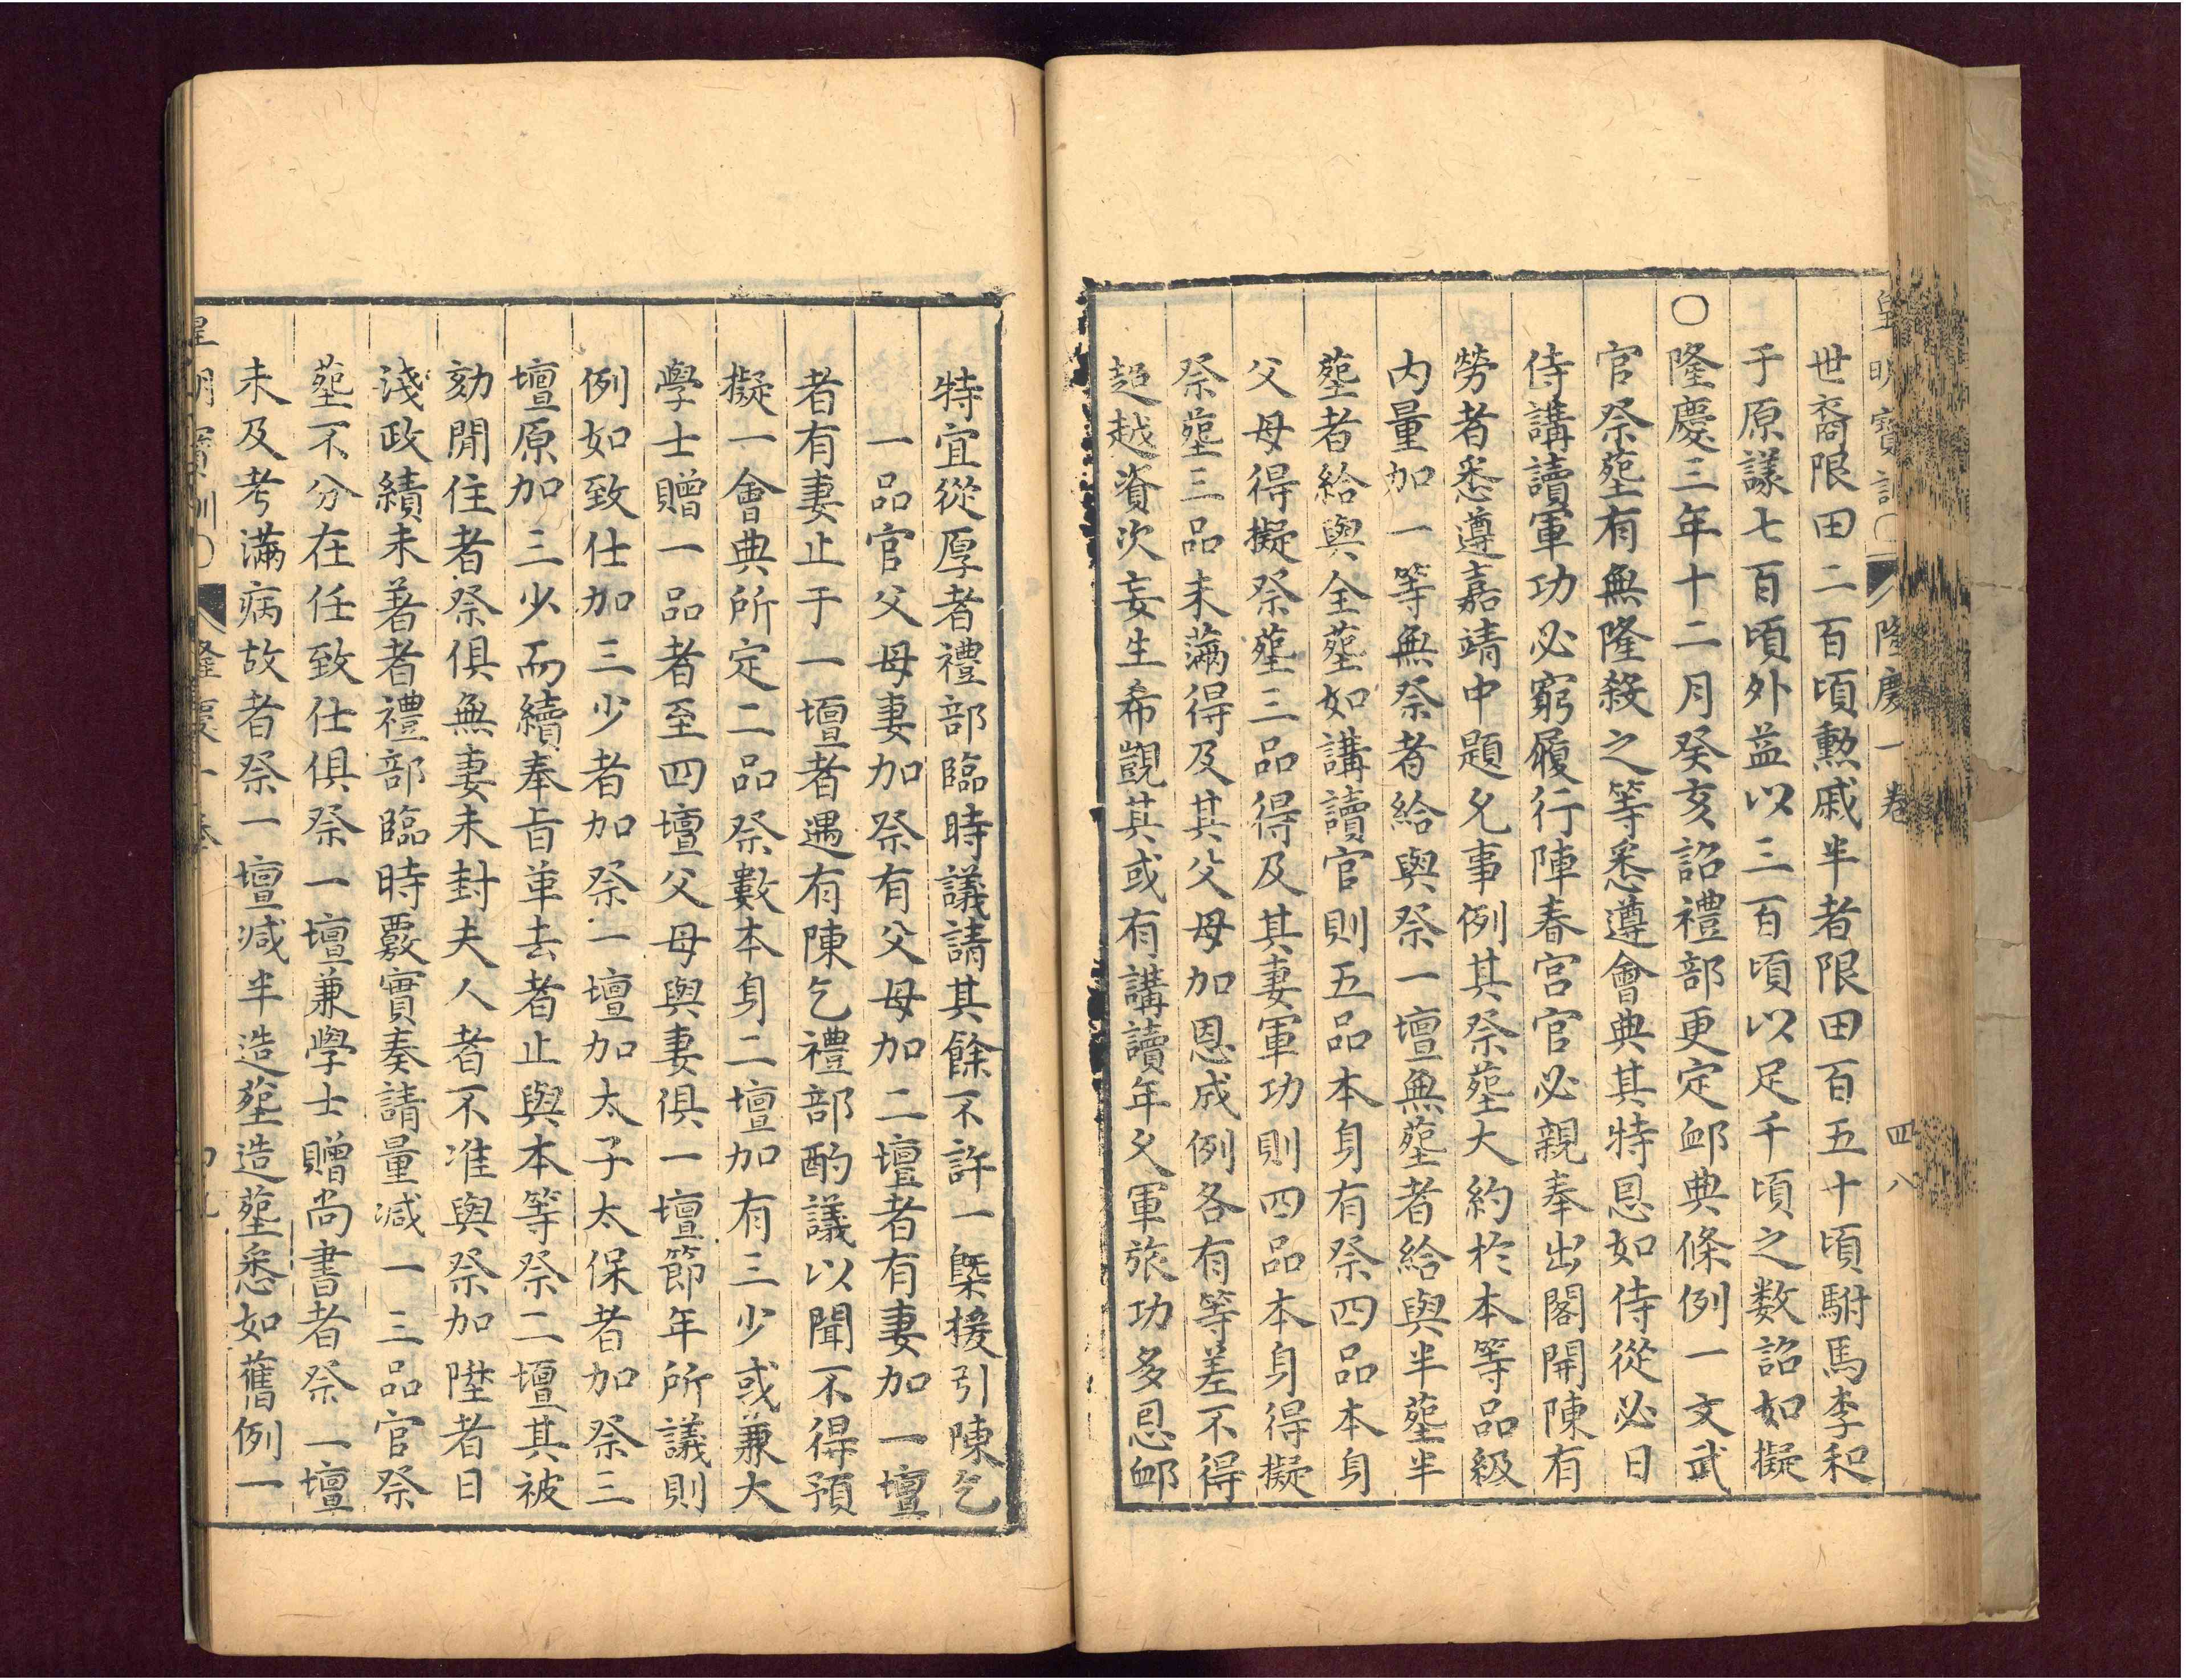 皇明寶訓〇 隆慶一卷 四八
世裔限田二百頃勲戚半者限田百五十頃駙馬李和
于原議七百頃外益以三百頃以足千頃之数詔如擬
〇隆慶三年十二月癸亥詔禮部更定䘏典條例一文武
官祭塟有無隆殺之等悉遵會典其特恩如侍從必日
侍講讀軍功必窮履行陣春宫官必親奉出閣開陳有
勞者悉遵嘉靖中題允事例其祭塟大約於本等品級
内量加一等無祭者給與祭一壇無塟者給與半塟半
塟者給與全塟如講讀官則五品本身有祭四品本身
父母得擬祭塟三品得及其妻軍功則四品本身得擬
祭塟三品未滿得及其父母加恩成例各有等差不得
超越資次妄生希覬其或有講讀年久軍旅功多恩䘏
特宜從厚者禮部臨時議請其餘不許一槩援引陳乞
一品官父母妻加祭有父母加二壇者有妻加一壇
者有妻止于一壇者遇有陳乞禮部酌議以聞不得預
擬一會典所定二品祭數本身二壇加有三少或兼大
學士贈一品者至四壇父母與妻俱一壇節年所議則
例如致仕加三少者加祭一壇加太子太保者加祭三
壇原加三少而續奉旨革去者止與本等祭二壇其被
劾閒住者祭俱無妻未封夫人者不准與祭加陞者日
淺政績未著者禮部臨時覈實奏請量减一三品官祭
塟不分在任致仕俱祭一壇兼學士贈尚書者祭二壇
未及考滿病故者祭一壇减半造塟造塟悉如舊例一
皇明寶訓〇 隆慶一卷